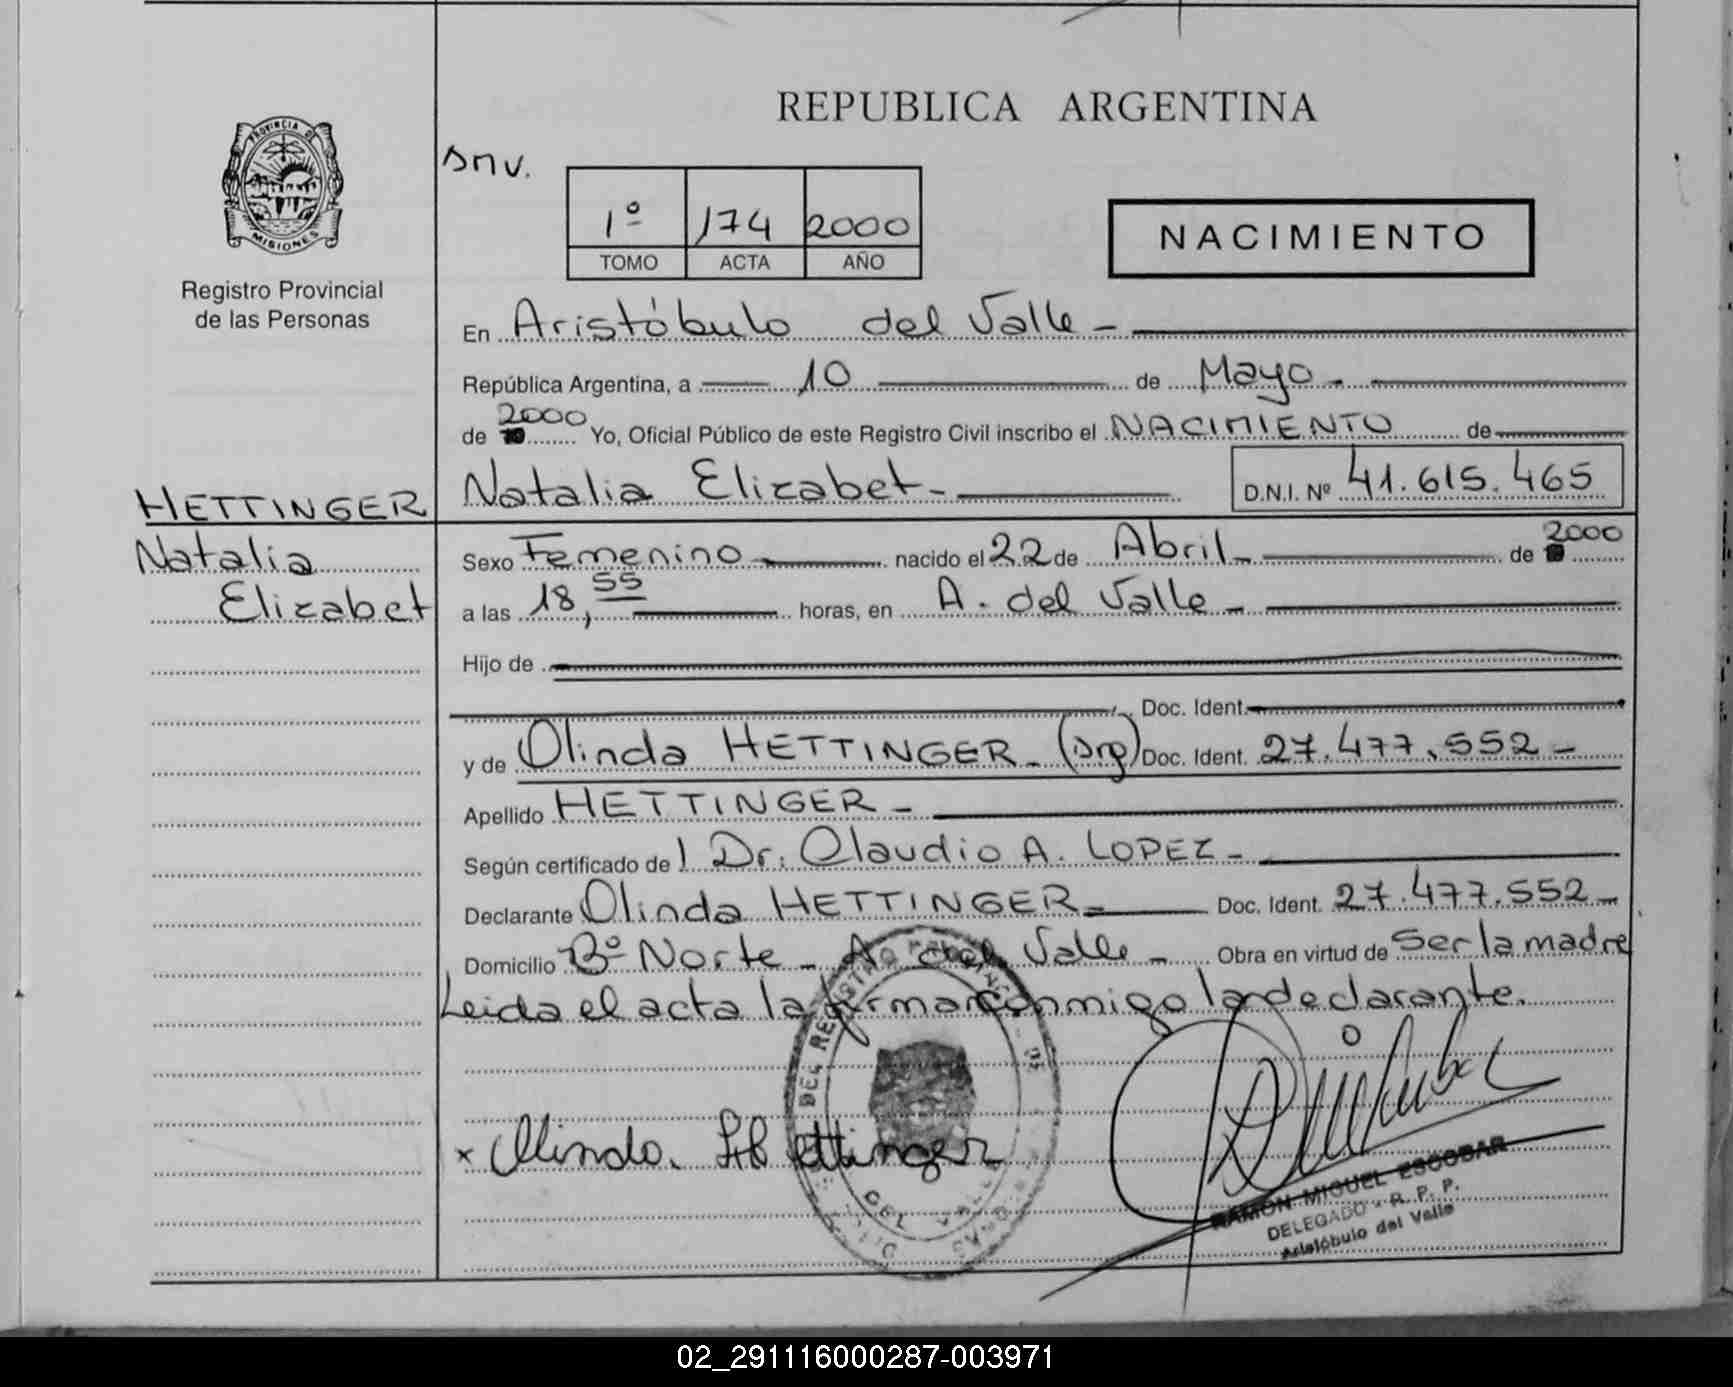 REPUBLICA ARGENTINA
PROVINCIA DE
MISIONES
Registro Provincial
de las Personas
snv.
1º 174 2000
TOMO ACTA AÑO
NACIMIENTO
En Aristóbulo del Valle -
República Argentina, a 10 de Mayo -
de 2000 Yo, Oficial Público de este Registro Civil inscribo el NACIMIENTO de
HETTINGER Natalia Elizabet - D.N.I. Nº 41.615.465
Natalia Sexo Femenino nacido el 22 de Abril - de 2000
Elizabet a las 18,55 horas, en A. del Valle -
Hijo de
Doc. Ident.
y de Olinda HETTINGER - (arg) Doc. Ident. 27.477.552 -
Apellido HETTINGER -
Según certificado de Dr. Claudio A. LOPEZ -
Declarante Olinda HETTINGER - Doc. Ident. 27.477.552 -
Domicilio Bº Norte - A. del Valle - Obra en virtud de ser la madre
Leida el acta la firma conmigo la declarante.
DEL VALLE
x Olinda Hettinger
RAMON MIGUEL ESCOBAR
DELEGADO - R. P. P.
Aristóbulo del Valle
02_291116000287-003971